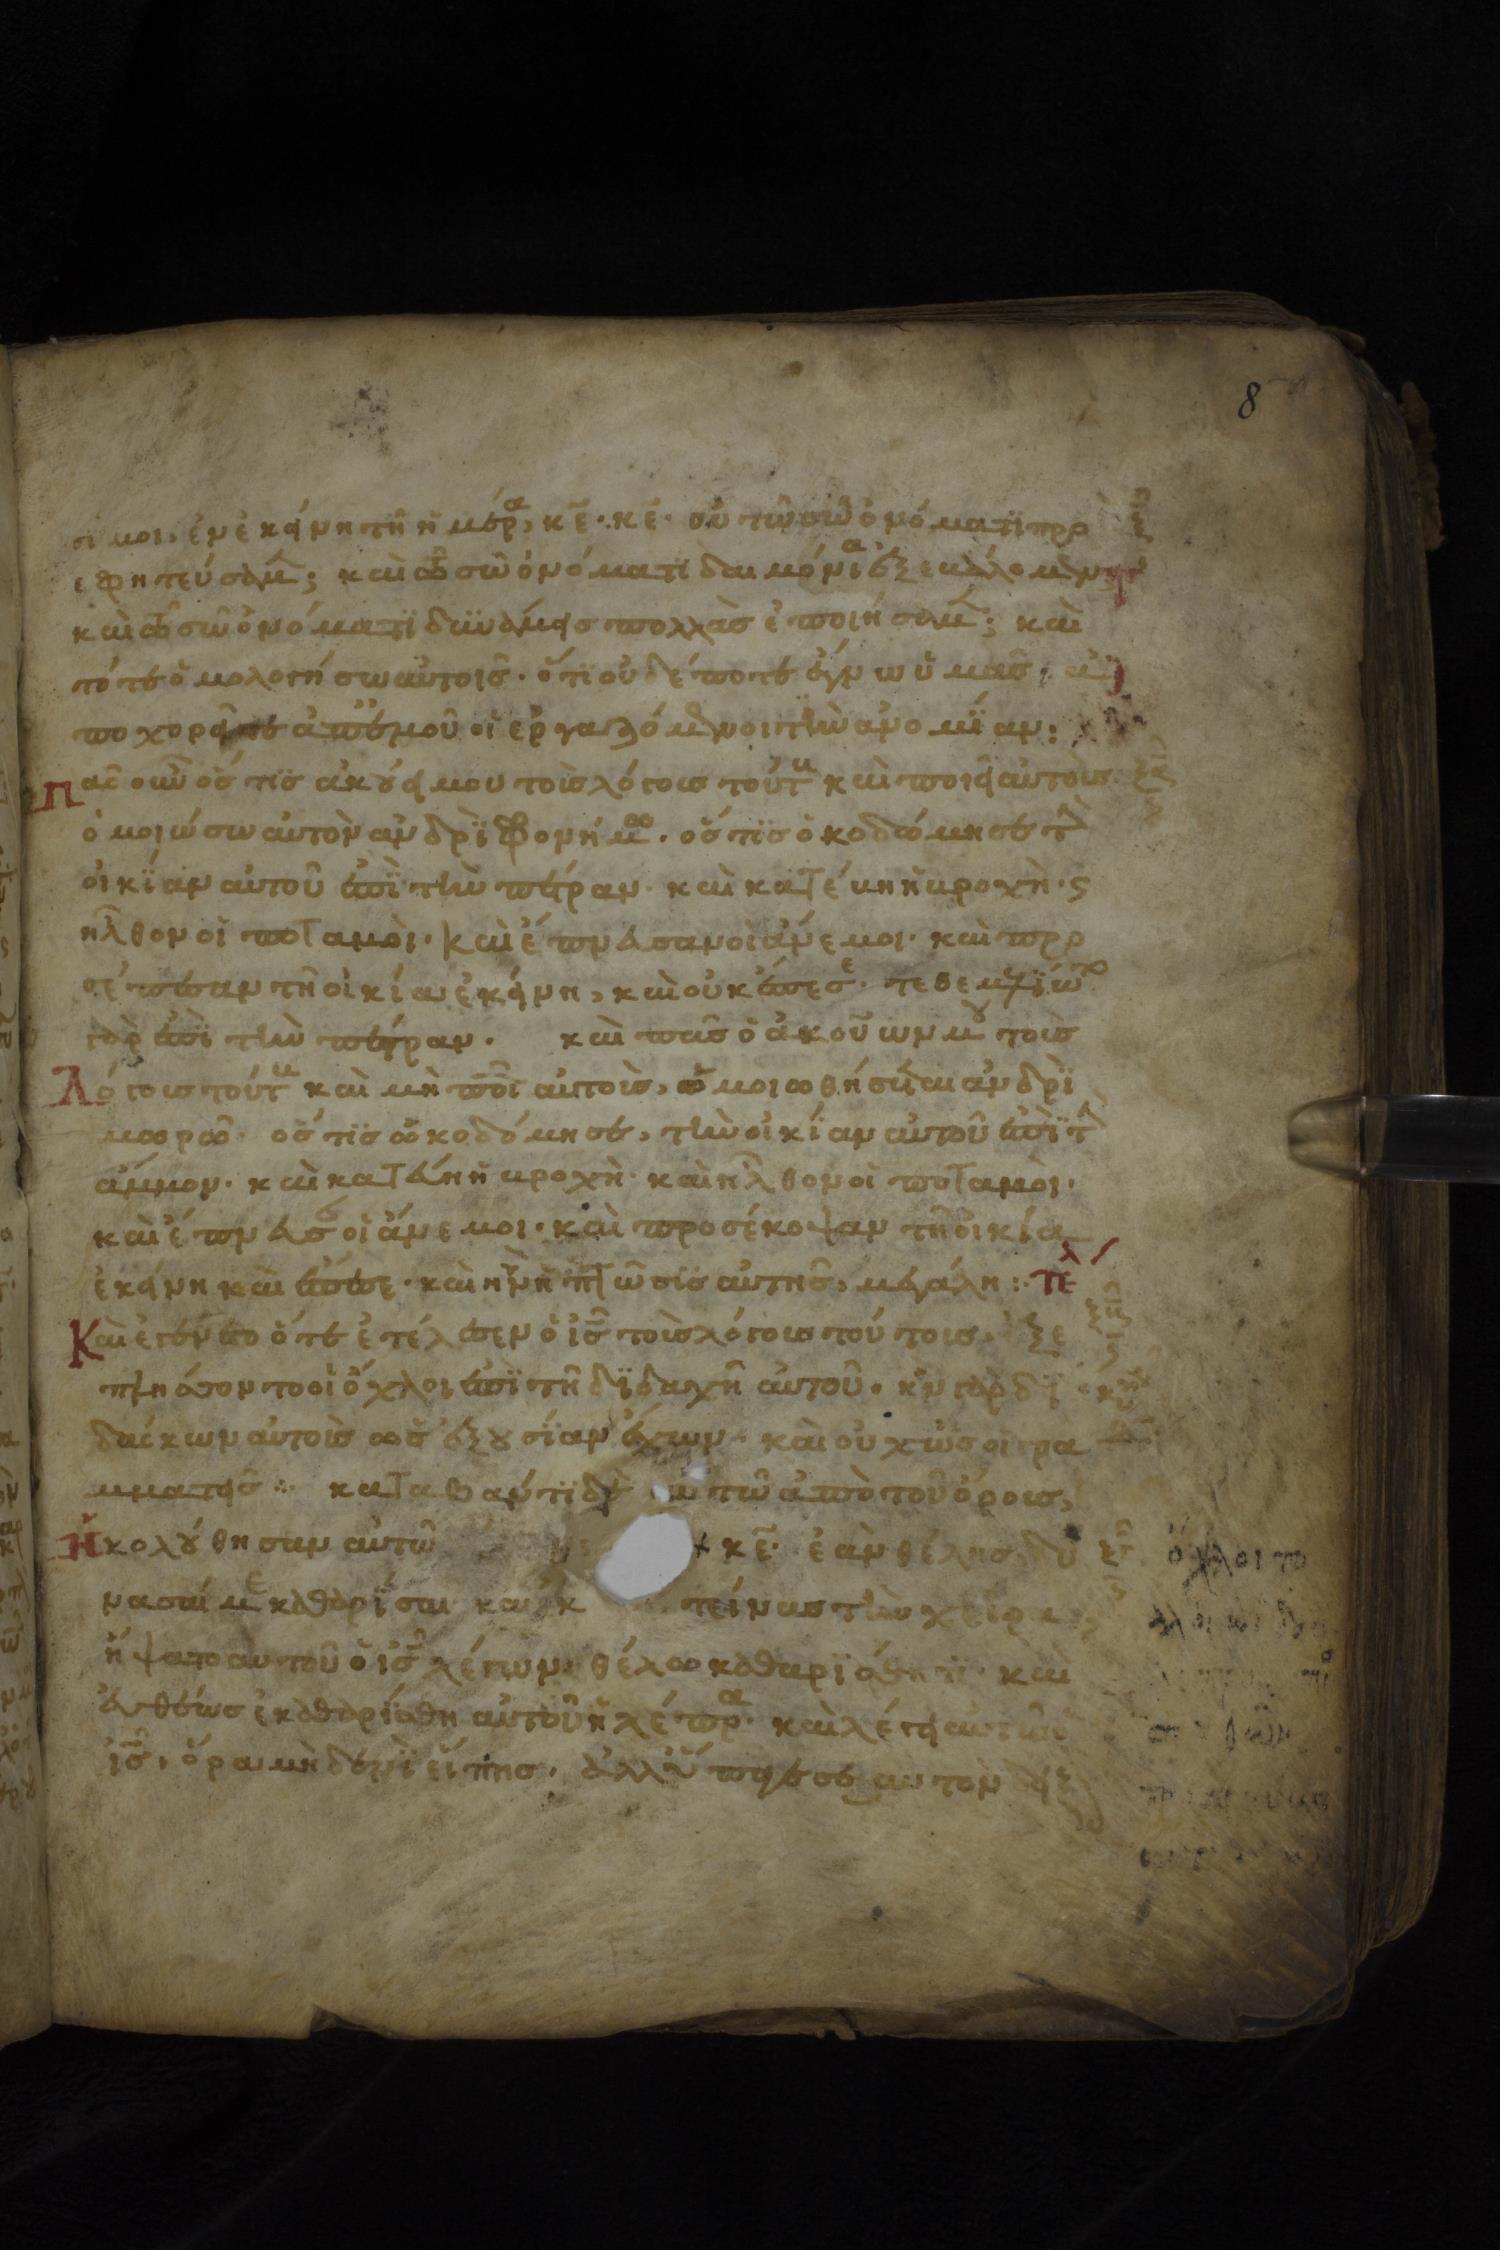 8
σι μοι, ἐν ἐκείνη τῆ ἡμέρα, κε̅· κε̅· οὐ τῶ σῶ ὀνόματϊ προ
εφητεύσαμ̅; καὶ τῶ σῶ ὀνόματϊ δαιμόνια ἐξεβάλομεν
καὶ τῶ σῶ ὀνόματϊ δϋνάμεις πολλὰς ἐποιήσαμ̅; καὶ
τότε ὁμολογήσω αὐτοῖς· ὅτϊ οὐδέποτε ἔγνω ὑμᾶς· ἀ
ποχορεῖτε ἀπ' ἐμοῦ οἱ ἐργαζόμενοι τὴν ἀνομΐαν:
Πας οὖν ὅστϊς ἀκούει μου τοὺς λόγους τούτ καὶ ποιεῖ αὐτοὺς·
ὁμοιώσω αὐτὸν ἀνδρΐ φρονήμω· ὅστϊς ὀκοδώμησε τὴν
οἰκΐαν αὐτοῦ ἐπΐ τὴν πέτραν· καὶ κατέβη ἡ βροχὴ· ϛ
ἦλθον οἱ ποταμοὶ· καὶ ἔπνευσαν οἱ ἄνεμοι· καὶ προ
σέπεσαν τῆ οἰκία ἐκείνη, καὶ οὐκ ἔπεσε· τεθεμελΐωτο
γὰρ ἐπὶ τὴν πέτραν· καὶ πᾶς ὁ ἀκούων μου τοὺς
Λόγους τούτ καὶ μὴ ποι αὐτοὺς, ὡμοιωθήσεται ἀνδρΐ
μωρῶ· ὅστϊς ὠκοδόμησε, τὴν οἰκΐαν αὐτοῦ ἐπΐ τὴν
ἄμμον· καὶ κατέβη ἡ βροχὴ· καὶ ἦλθον οἱ ποταμοὶ·
καὶ ἔπνευσ οἱ ἄνεμοι· καὶ προσέκοψαν τῆ οἰκία
ἐκείνη καὶ ἔπεσε· καὶ ἦν ἡ πτῶσϊς αὐτῆς, μεγάλη: τελ
Καὶ ἐγένετο ὅτε ἐτέλεσεν ὁ ις̅ τοὺς λόγους τούτους· ἐξε
πλήσσοντο οἱ ὄχλοι ἐπΐ τῆ δϊδαχῆ αὐτοῦ· ἦν γὰρ δϊ
δάσκων αὐτοὺς ὡς ἐξουσΐαν ἔχων· καὶ οὐχ ὡς οἱ γρα
μματεῖς ⁘ καταβάντϊ δὲ τῶ ἀπὸ τοῦ ὄρους,
Ἠκολούθησαν αὐτῶ κε̅· ἐὰν θέλης, δύ
νασαί με καθαρΐσαι καὶ ἐκ τείνας τὴν χεῖρα
ἥψατο αὐτοῦ ὁ ις̅ λέγων· θέλω καθαρΐσθητϊ· καὶ
εὐθέως ἐκαθαρΐσθη αὐτοῦ ἡ λέπρα· καὶ λέγει αὐτῶ ὁ
ις̅· ὅρα μηδενΐ εἴπης·
ὄχλοι πο
λλοι